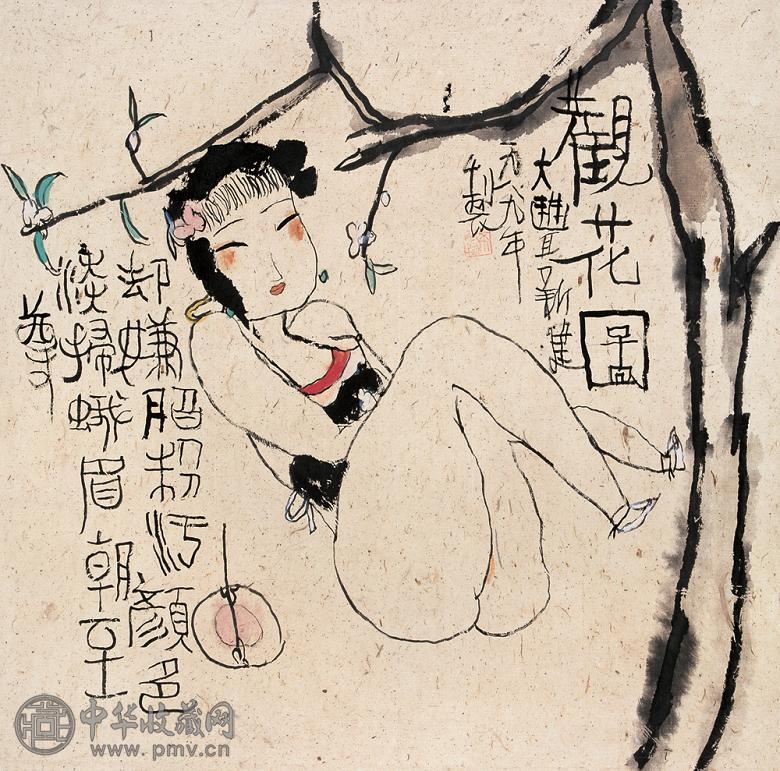 觀花圖
大豐新建
一九八九年
製
却嫌脂粉污顏色
淡掃蛾眉朝至
尊
中华收藏网
www.pmv.cn